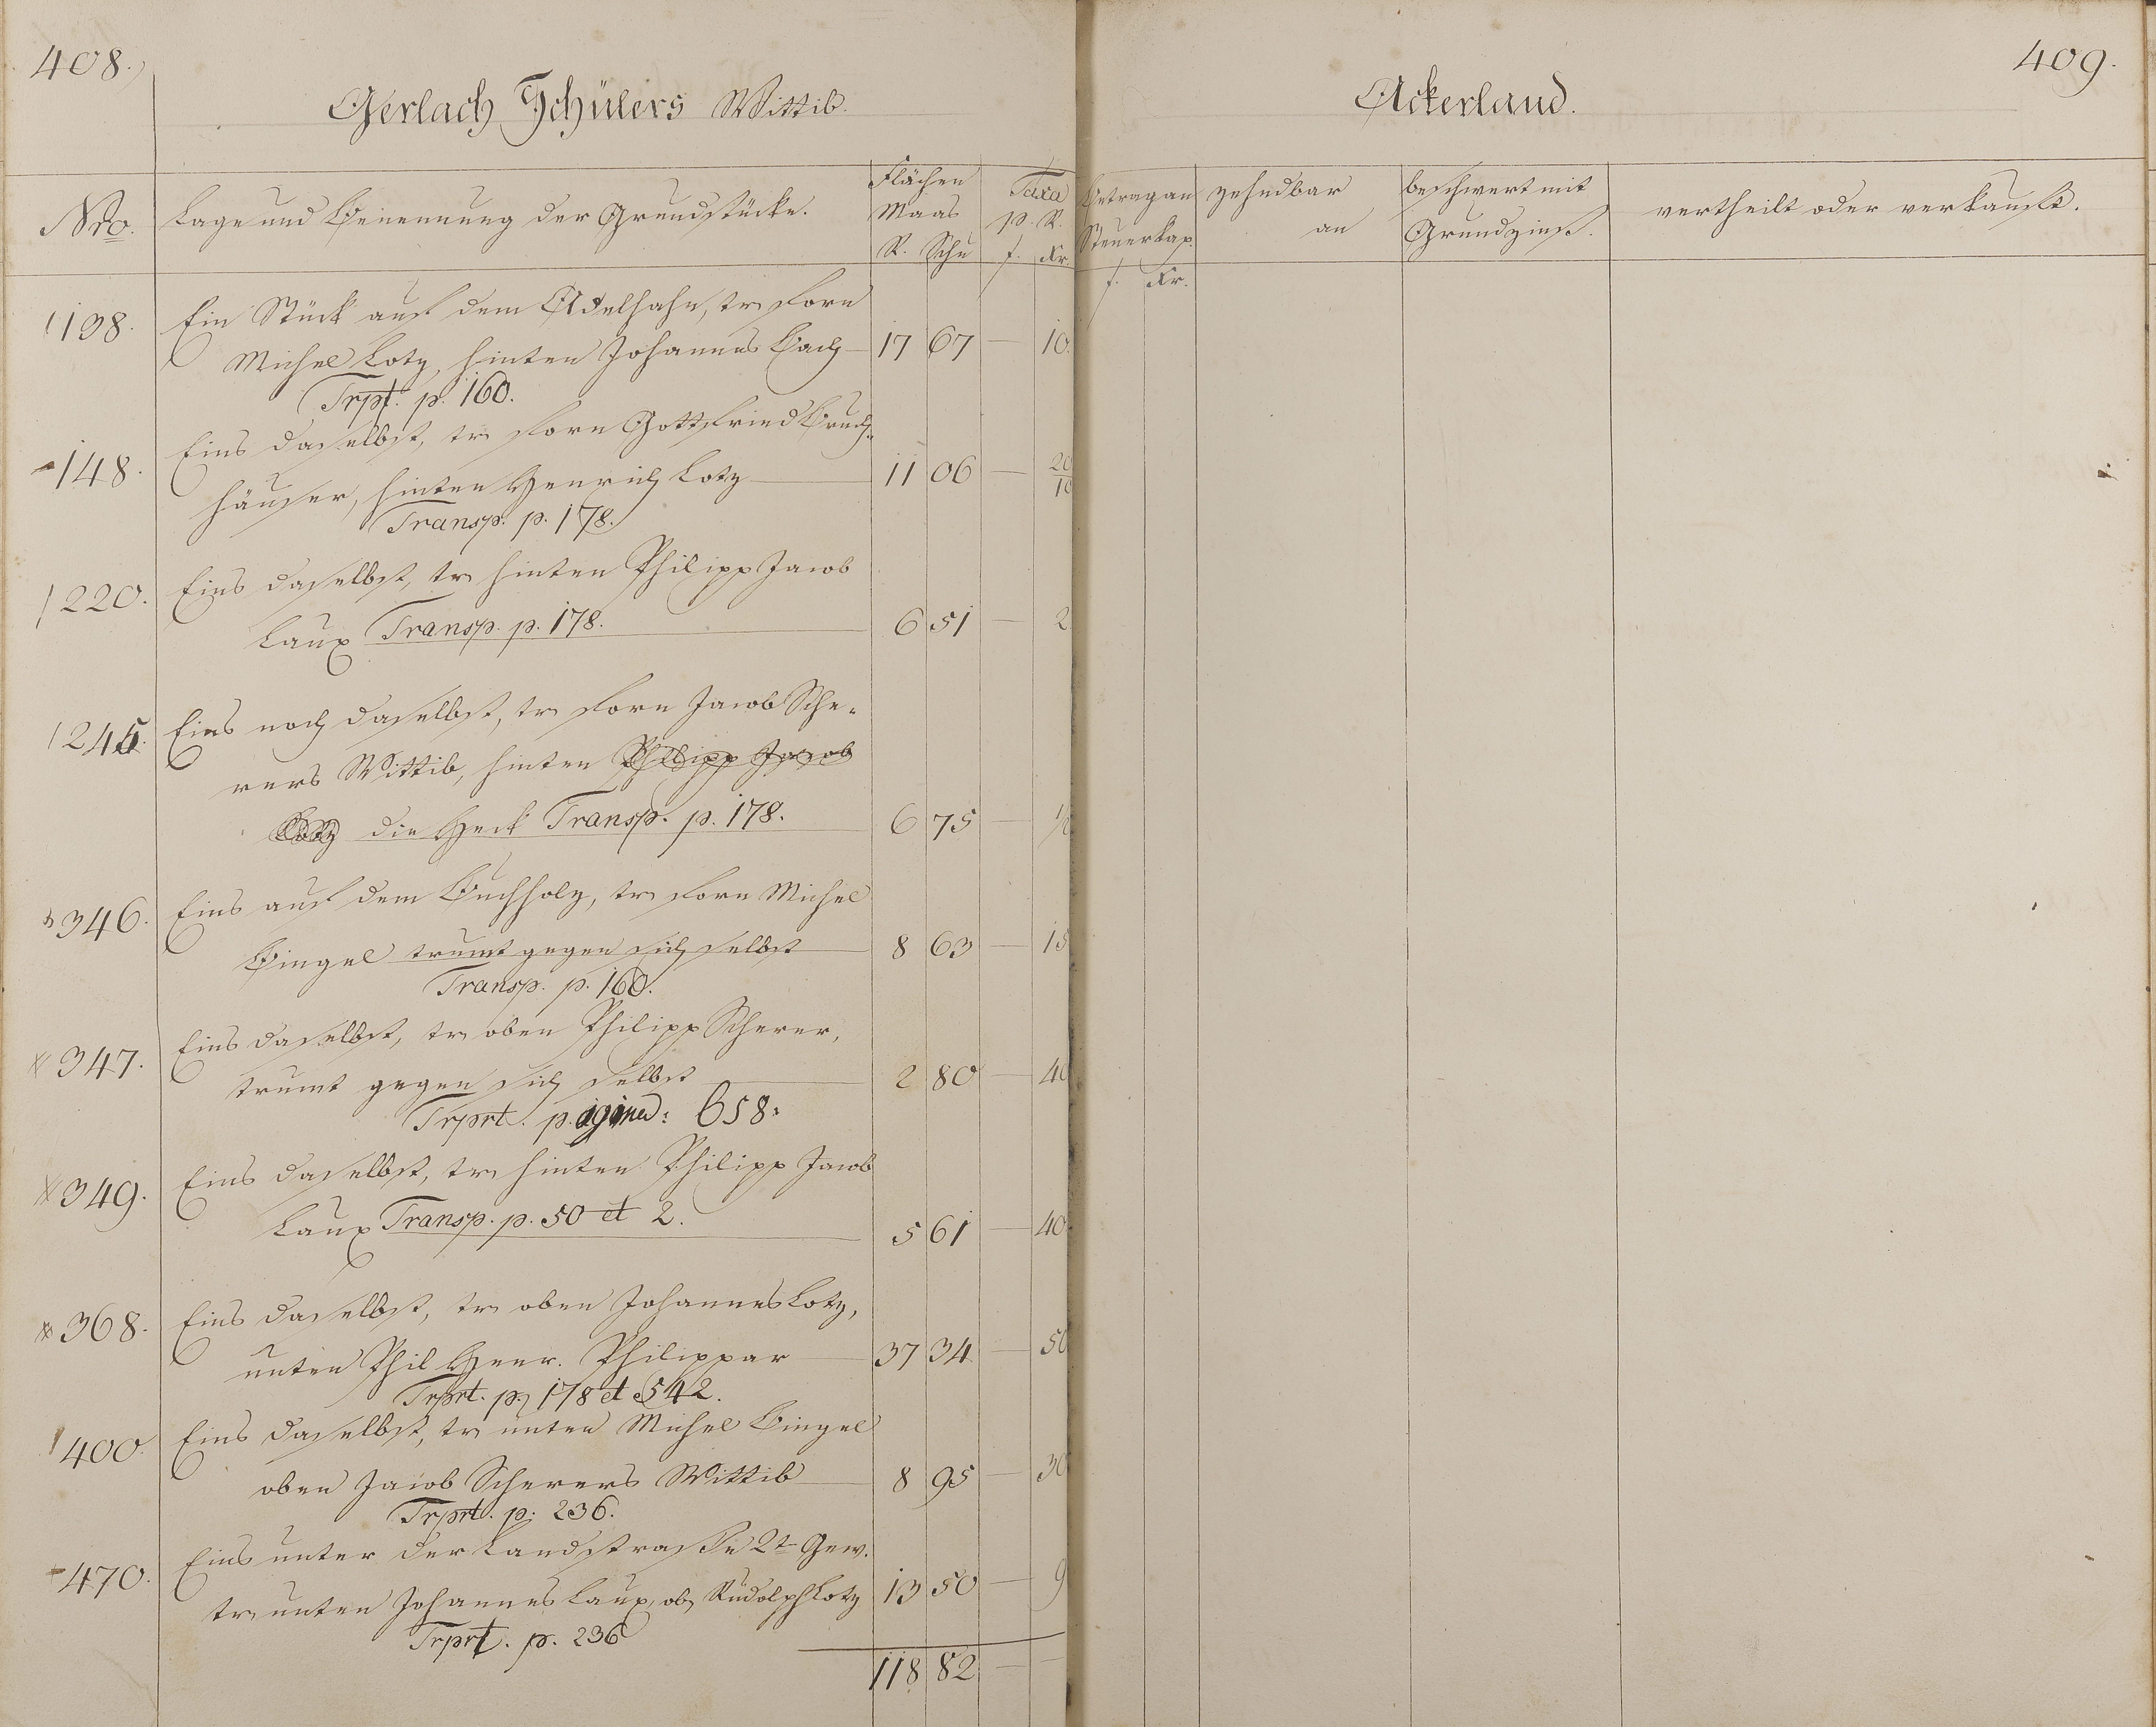 408.
Gerlach Schülers Wittib.
Nro.
Lage und Benennung der Grundstücke.
Flächen
Maas
R. Schu
Taxa
p. R.
f. Kr.
138. Ein Stück auf dem Adelhahn, tr forn
Michel Lotz, hinten Johannes Bach 17 67 — 10.
Trpt. p. 160.
148. Eins daselbst, tr forn Gottfried Bruch-
häuser, hinten Henrich Lotz 11 06 — 20/10
Transp. p. 178.
220. Eins daselbst, tr hinten Philipp Jacob
Laux Transp. p. 178. 6 51 — 2
245. Eins noch daselbst, tr forn Jacob Sche-
rers Wittib, hinten Philipp Jacob
Lotz die Heck Transp. p. 178. 6 75 — 1/2
346. Eins auf dem Buchholz, tr forn Michel
Bingel trumt gegen sich selbst 8 63 — 15
Transp. p. 160.
347. Eins daselbst, tr oben Philipp Scherer,
trumt gegen sich selbst 2 80 — 40
Trprt. pagina: 658:
349. Eins daselbst, tr hinten Philipp Jacob
Laux Transp. p. 50 et 2. 5 61 — 40
368. Eins daselbst, tr oben Johannes Lotz,
unten Phil Henr. Philippar 37 34 — 50
Trprt. p. 178 et 542.
400. Eins daselbst, tr unten Michel Bingel
oben Jacob Scherers Wittib 8 95 — 30
Trprt. p: 236.
470. Eins unter der Landstraße 2t Gew.
tr unten Johannes Laux, ob Rudolph Lotz 13 50 — 9
Trprt. p. 236
118 82 — —
409.
Ackerland.
Betrag an
Steuerkap.
f. Kr.
zehndbar
an
beschwert mit
Grundzins.
vertheilt oder verkauft.